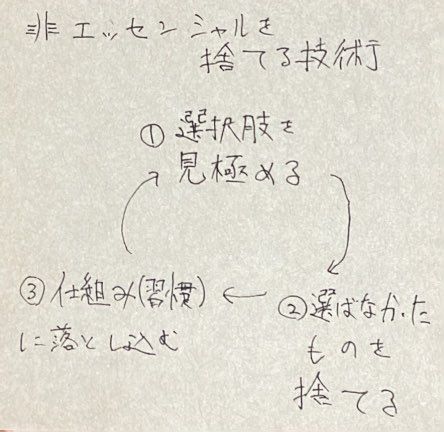 非エッセンシャルを
捨てる技術
① 選択肢を
見極める
②選ばなかった
ものを
捨てる
③仕組み(習慣)
に落とし込む